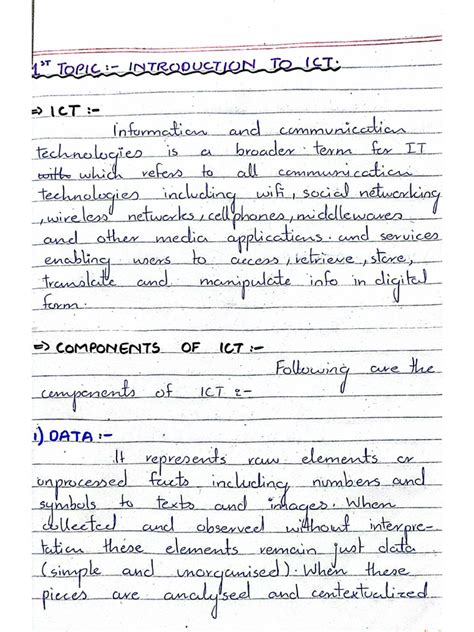 1ST TOPIC:- INTRODUCTION TO ICT.
⇒ ICT :-
Information and communication
technologies is a broader term for IT
with which refers to all communication
technologies including wifi, social networking
, wireless networks, cellphones, middlewares
and other media applications and services
enabling users to access, retrieve, store,
translate and manipulate info in digital
form.
⇒ COMPONENTS OF ICT :-
Following are the
components of ICT :-
i) DATA :-
It represents raw elements or
unprocessed facts including numbers and
symbols to texts and images. When
collected and observed without interpre-
tation these elements remain just data
(simple and unorganised). When these
pieces are analysed and contextualized